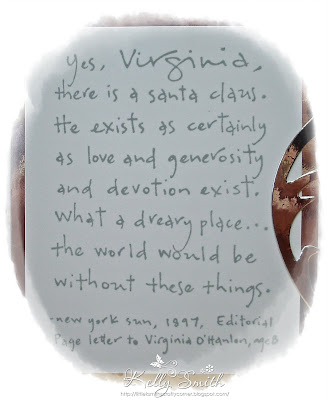 yes, Virginia,
there is a santa claus.
He exists as certainly
as love and generosity
and devotion exist.
What a dreary place...
the world would be
without these things.
-new york sun, 1897, Editorial
Page letter to Virginia O'Hanlon, age 8
Kelly Smith